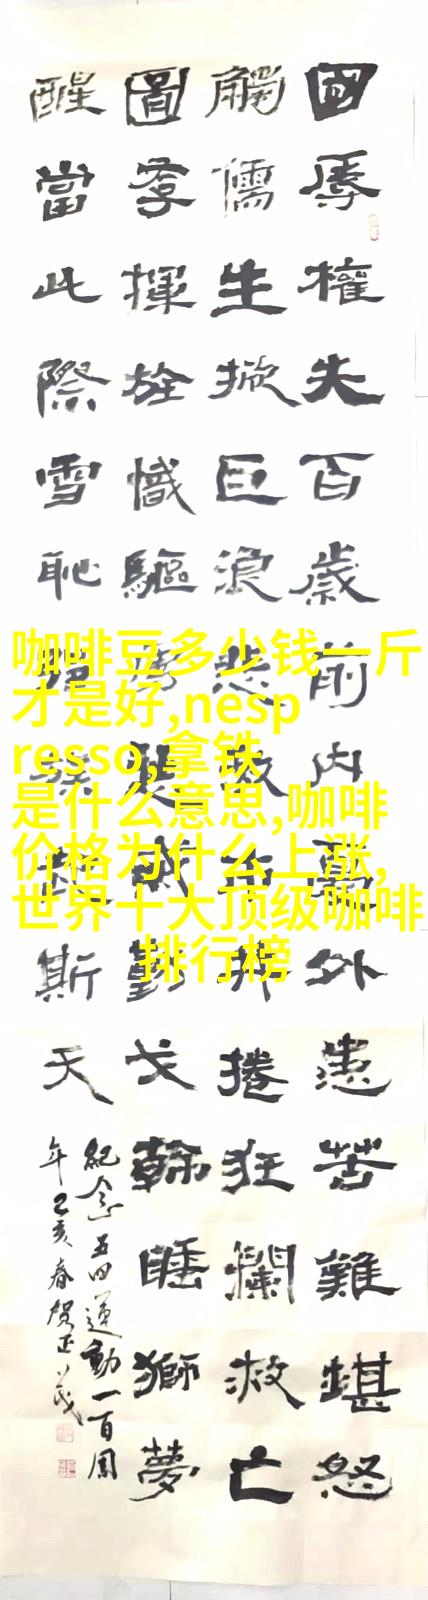 國辱權失百歲前內外患苦難堪怒
觸儒生掀巨浪悲捲狂瀾救亡
圖存揮旌幟驅戈睡獅夢
醒當此際雪恥族斯天
紀念五四運動一百周
年己亥春賀正
咖啡豆多少钱一斤
才是好,nesp
resso,拿铁
是什么意思,咖啡
价格为什么上涨,
世界十大顶级咖啡
排行榜